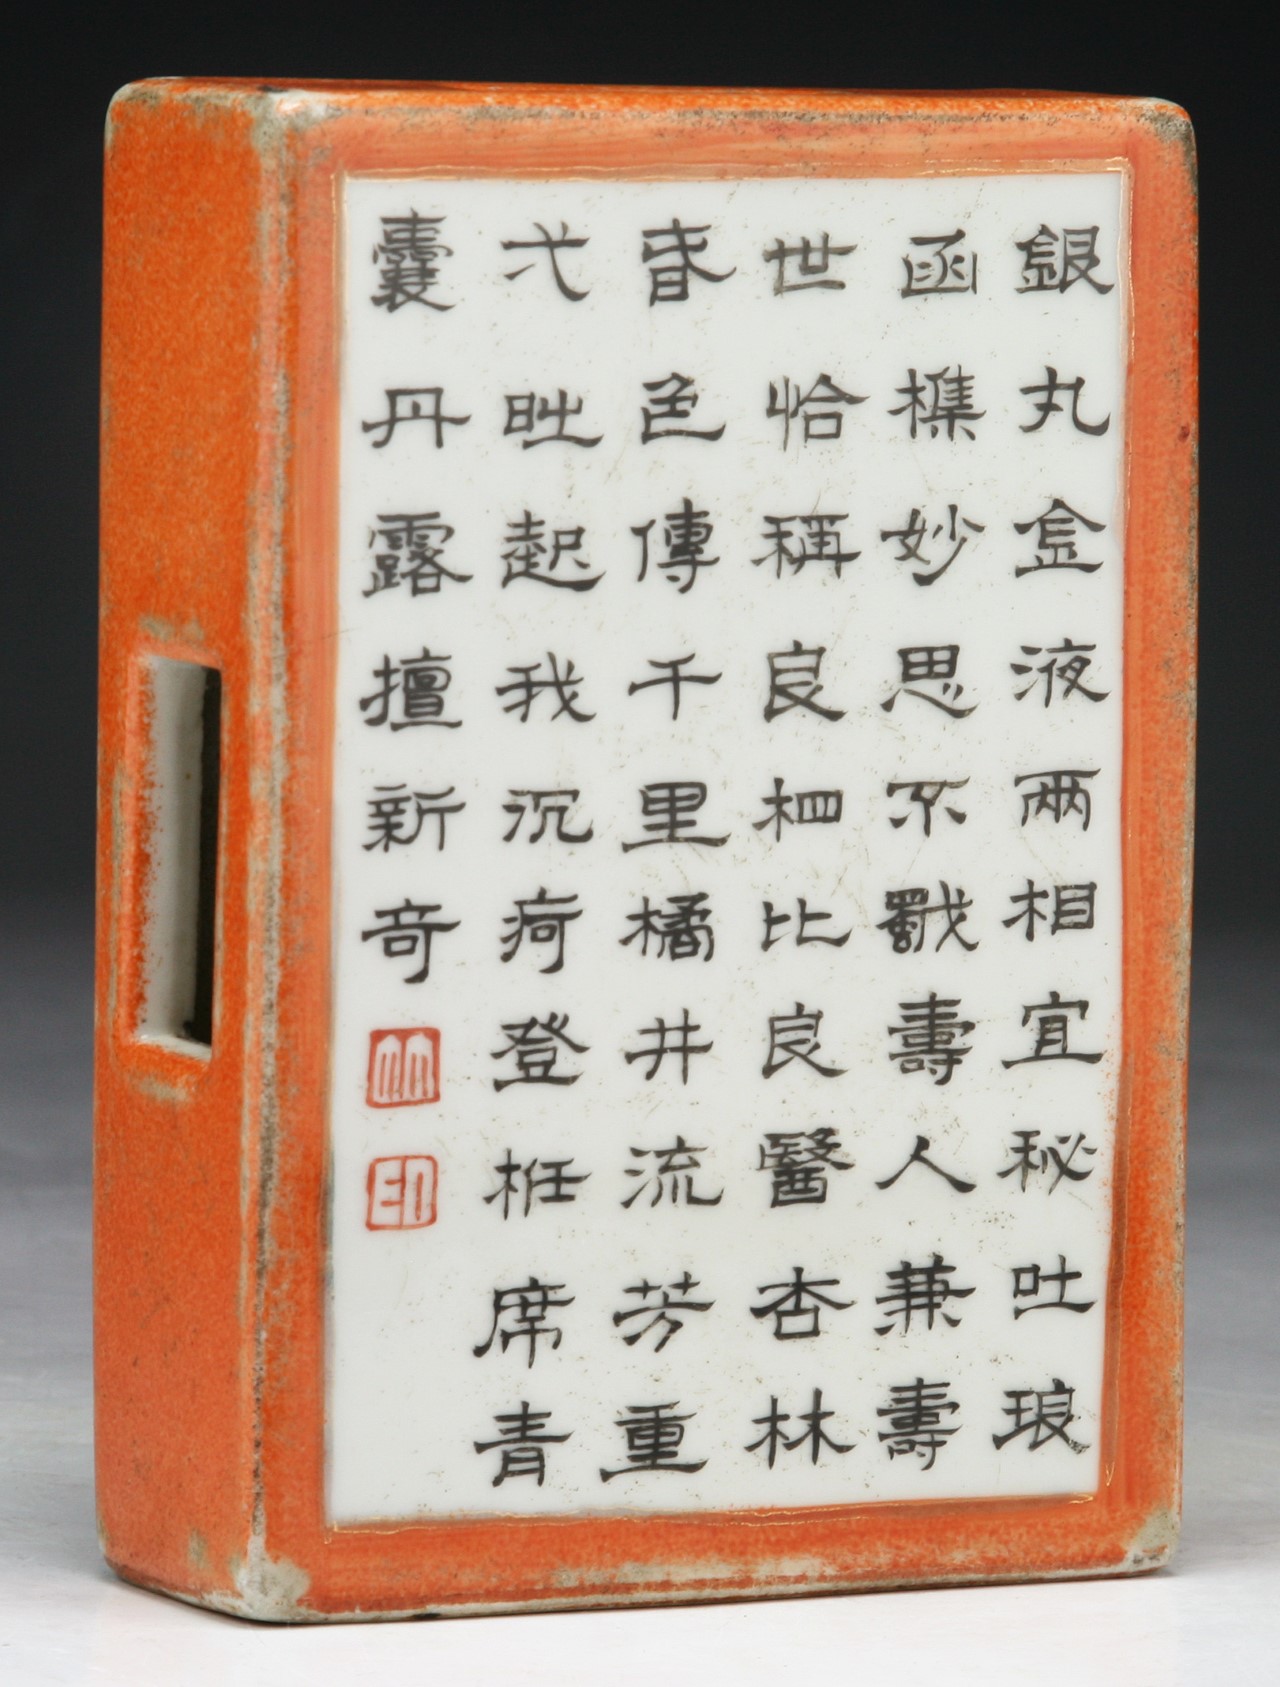 銀丸金液兩相宜秘吐琅
函樵妙思不獨壽人兼壽
世恰稱良相比良醫杏林
春色傳千里橘井流芳重
弌時起我沉疴登衽席青
囊丹露擅新奇
印